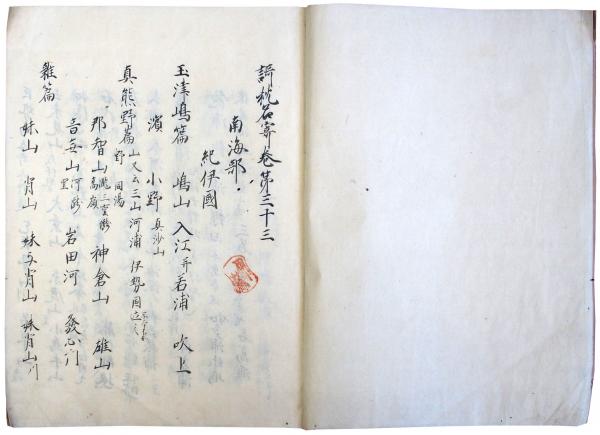 謌枕名寄巻第三十三
南海部
紀伊國
玉津嶋篇 嶋山 入江并若浦 吹上
濱 小野 真沙山
真熊野篇 山又云三山 河 浦 伊勢國
野 同湯
那智山 瀧三重瀧 高嶺 神倉山 雄山
音無山 河瀧 里 岩田河 發心門
雜篇
妹山 背山 妹与背山 妹背山川